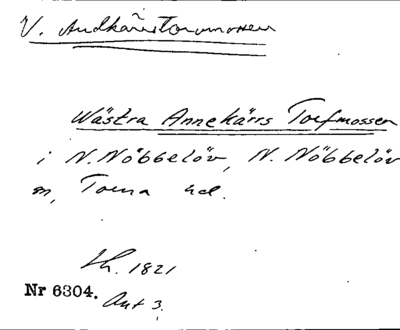 V. Andkärrstorvmossen
Wästra Annekärrs Torfmossen
i N. Nöbbelöv, N. Nöbbelöv
sn, Torna hd.
Lh. 1821
Nr 6304. Akt 3.